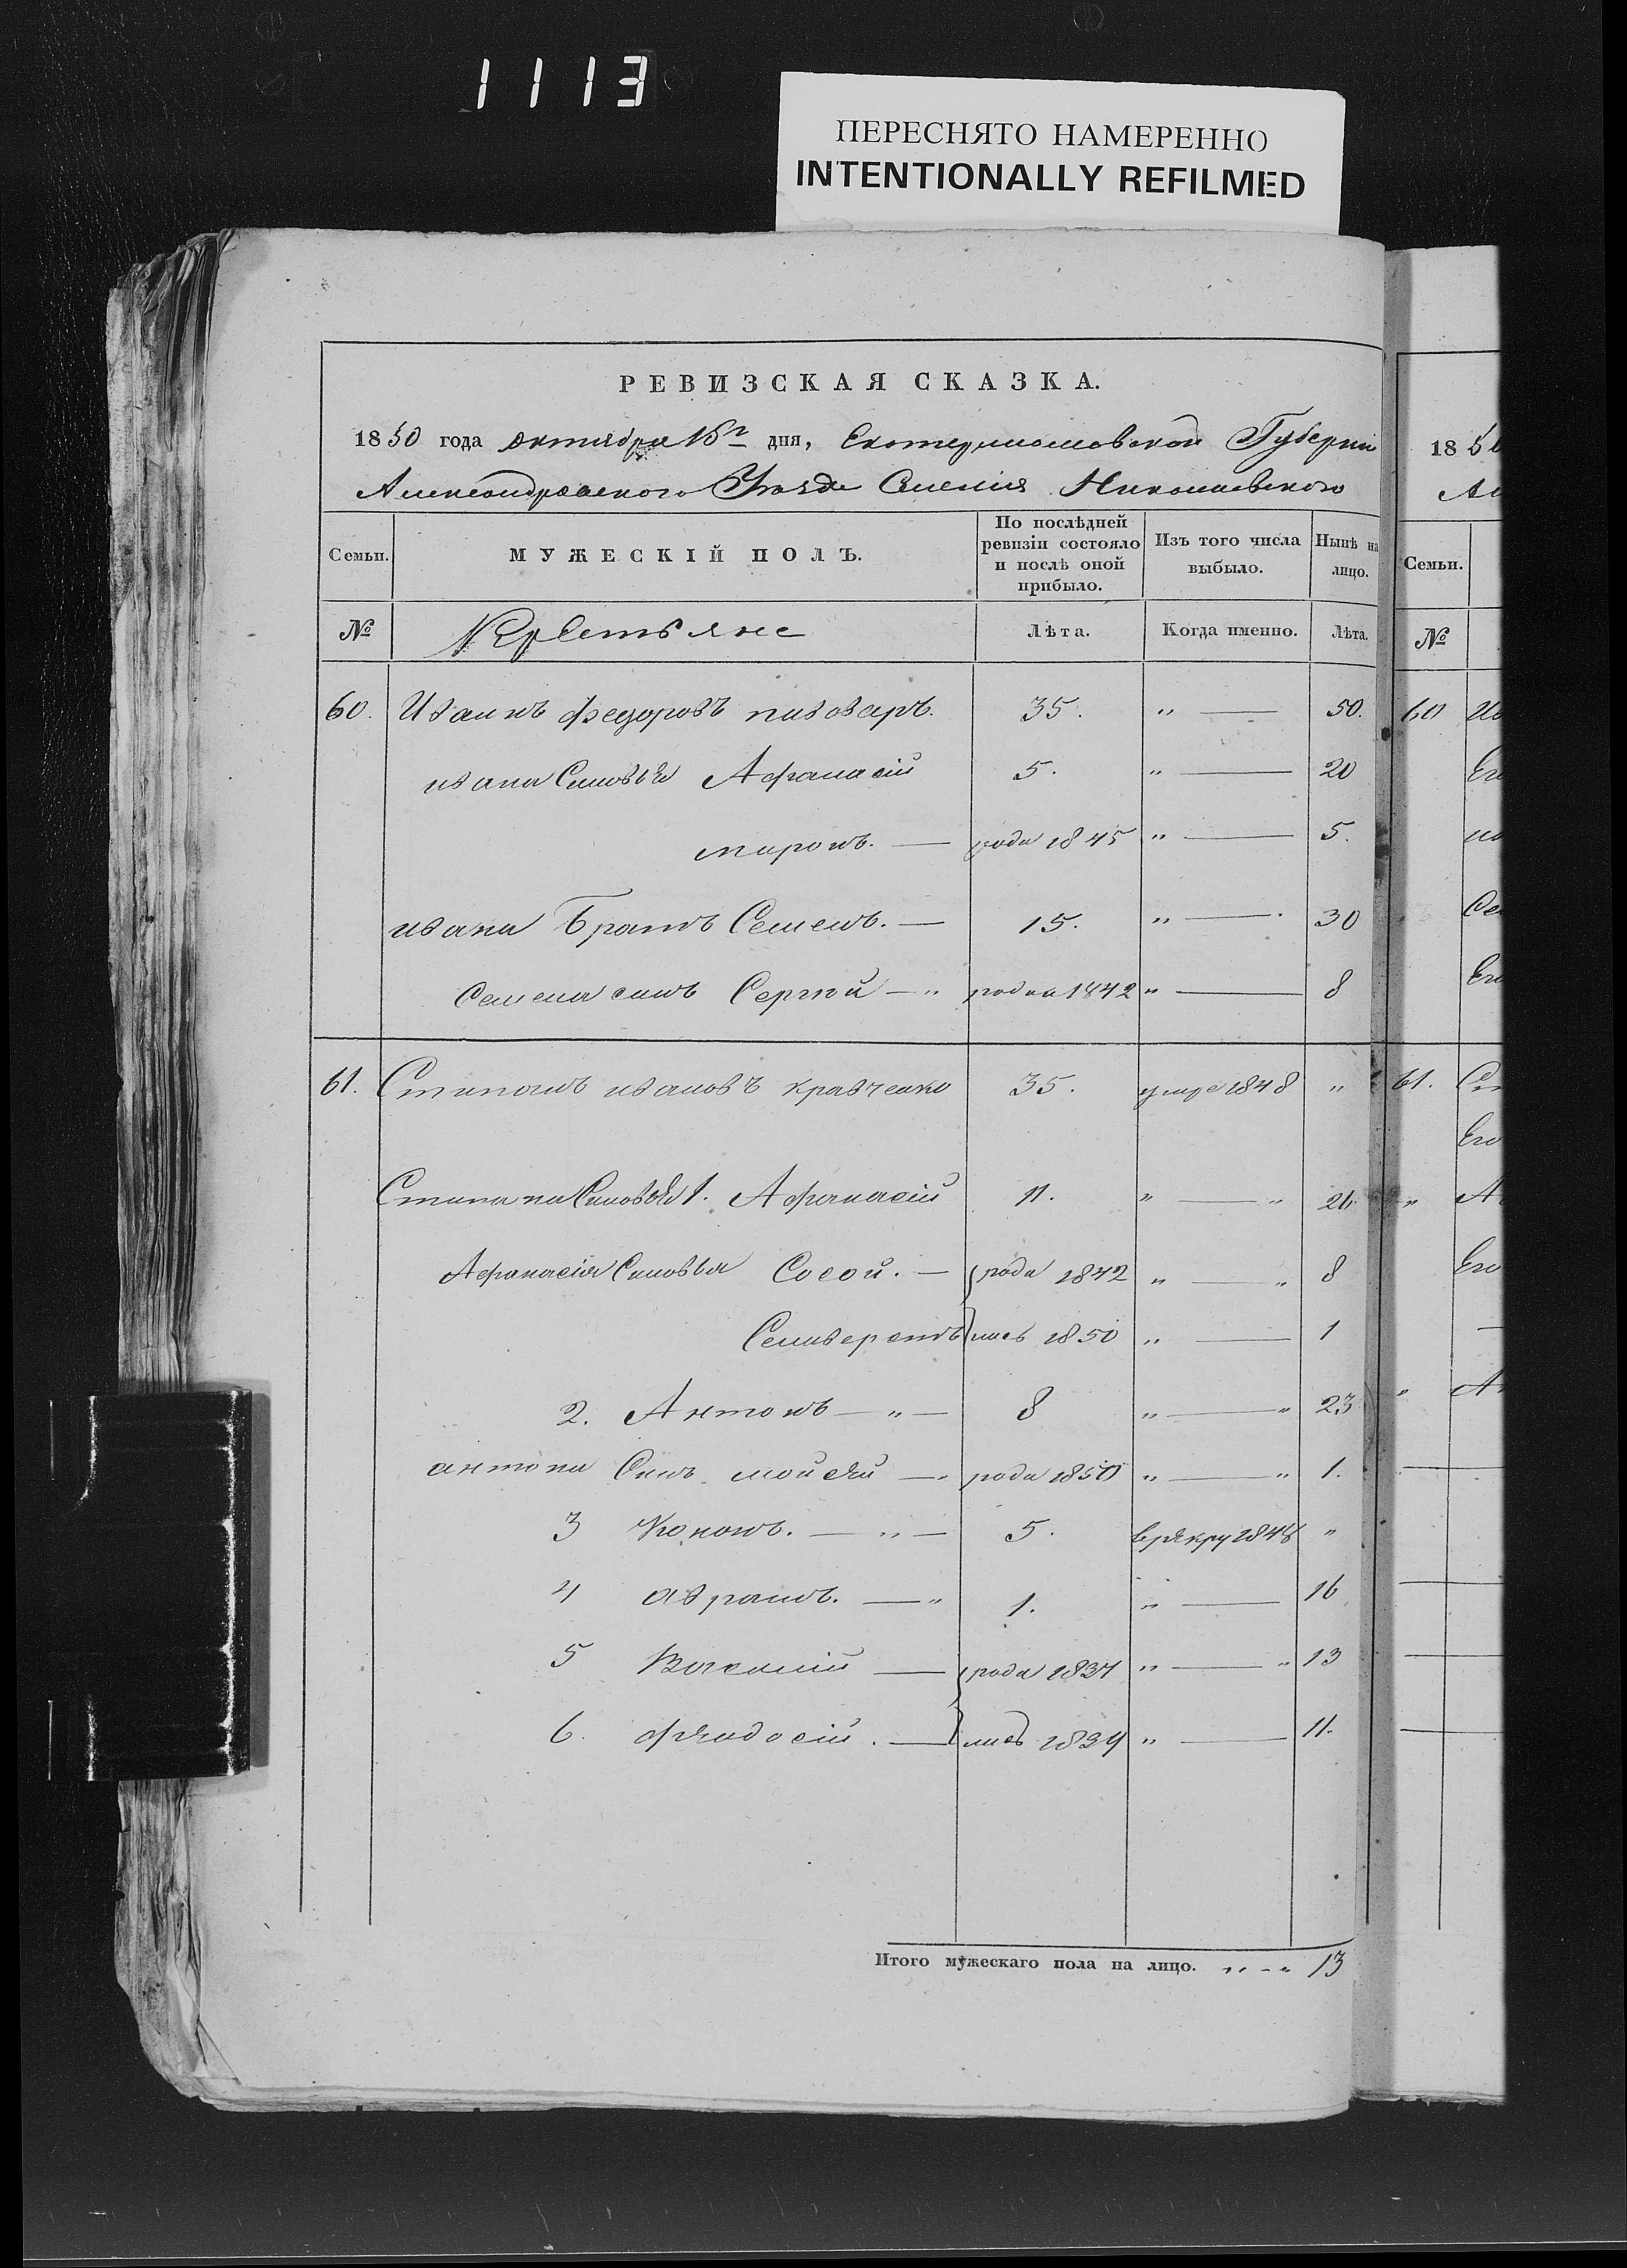 1113
ПЕРЕСНЯТО НАМЕРЕННО
INTENTIONALLY REFILMED
РЕВИЗСКАЯ СКАЗКА.
1850 года октября 15го дня, Екатеринославской Губернии
Александровского Уезда Селения Николаевского
Семьи.
МУЖЕСКІЙ ПОЛЪ.
По послѣдней ревизіи состояло и послѣ оной прибыло.
Изъ того числа выбыло.
Нынѣ на лицо.
Семьи.
№ Крестьяне Лѣта. Когда именно. Лѣта. №
60. Иванъ Федоровъ пивоваръ. 35. " — 50. 60
ивана Синовья Афанасій 5. " — 20
миронъ. — рода 1845 " — 5.
ивана Братъ Семенъ. — 15. " — 30
Семена синъ Сергѣй — " родил 1842 " — 8
61. Стипанъ ивановъ кравченко 35. умре 1848 " 61.
Стипана Синовья 1. Афанасій 11. " — " 26
Афанасія Синовья Сосой. — рода 1842 " — " 8
Селиверстъ лись 1850 " — 1
2. Антонъ — " — 8 " — " 23
антона Синъ мойсѣй — рода 1850 " — " 1.
3 Кононъ. — " — 5. врѣкру 1848 "
4 Аврамъ. — " 1. " — 16
5 — рода 1837 " — " 13
6. фѣодосій. — лись 1839 " — 11.
Итого мужескаго пола на лицо. " - " 13